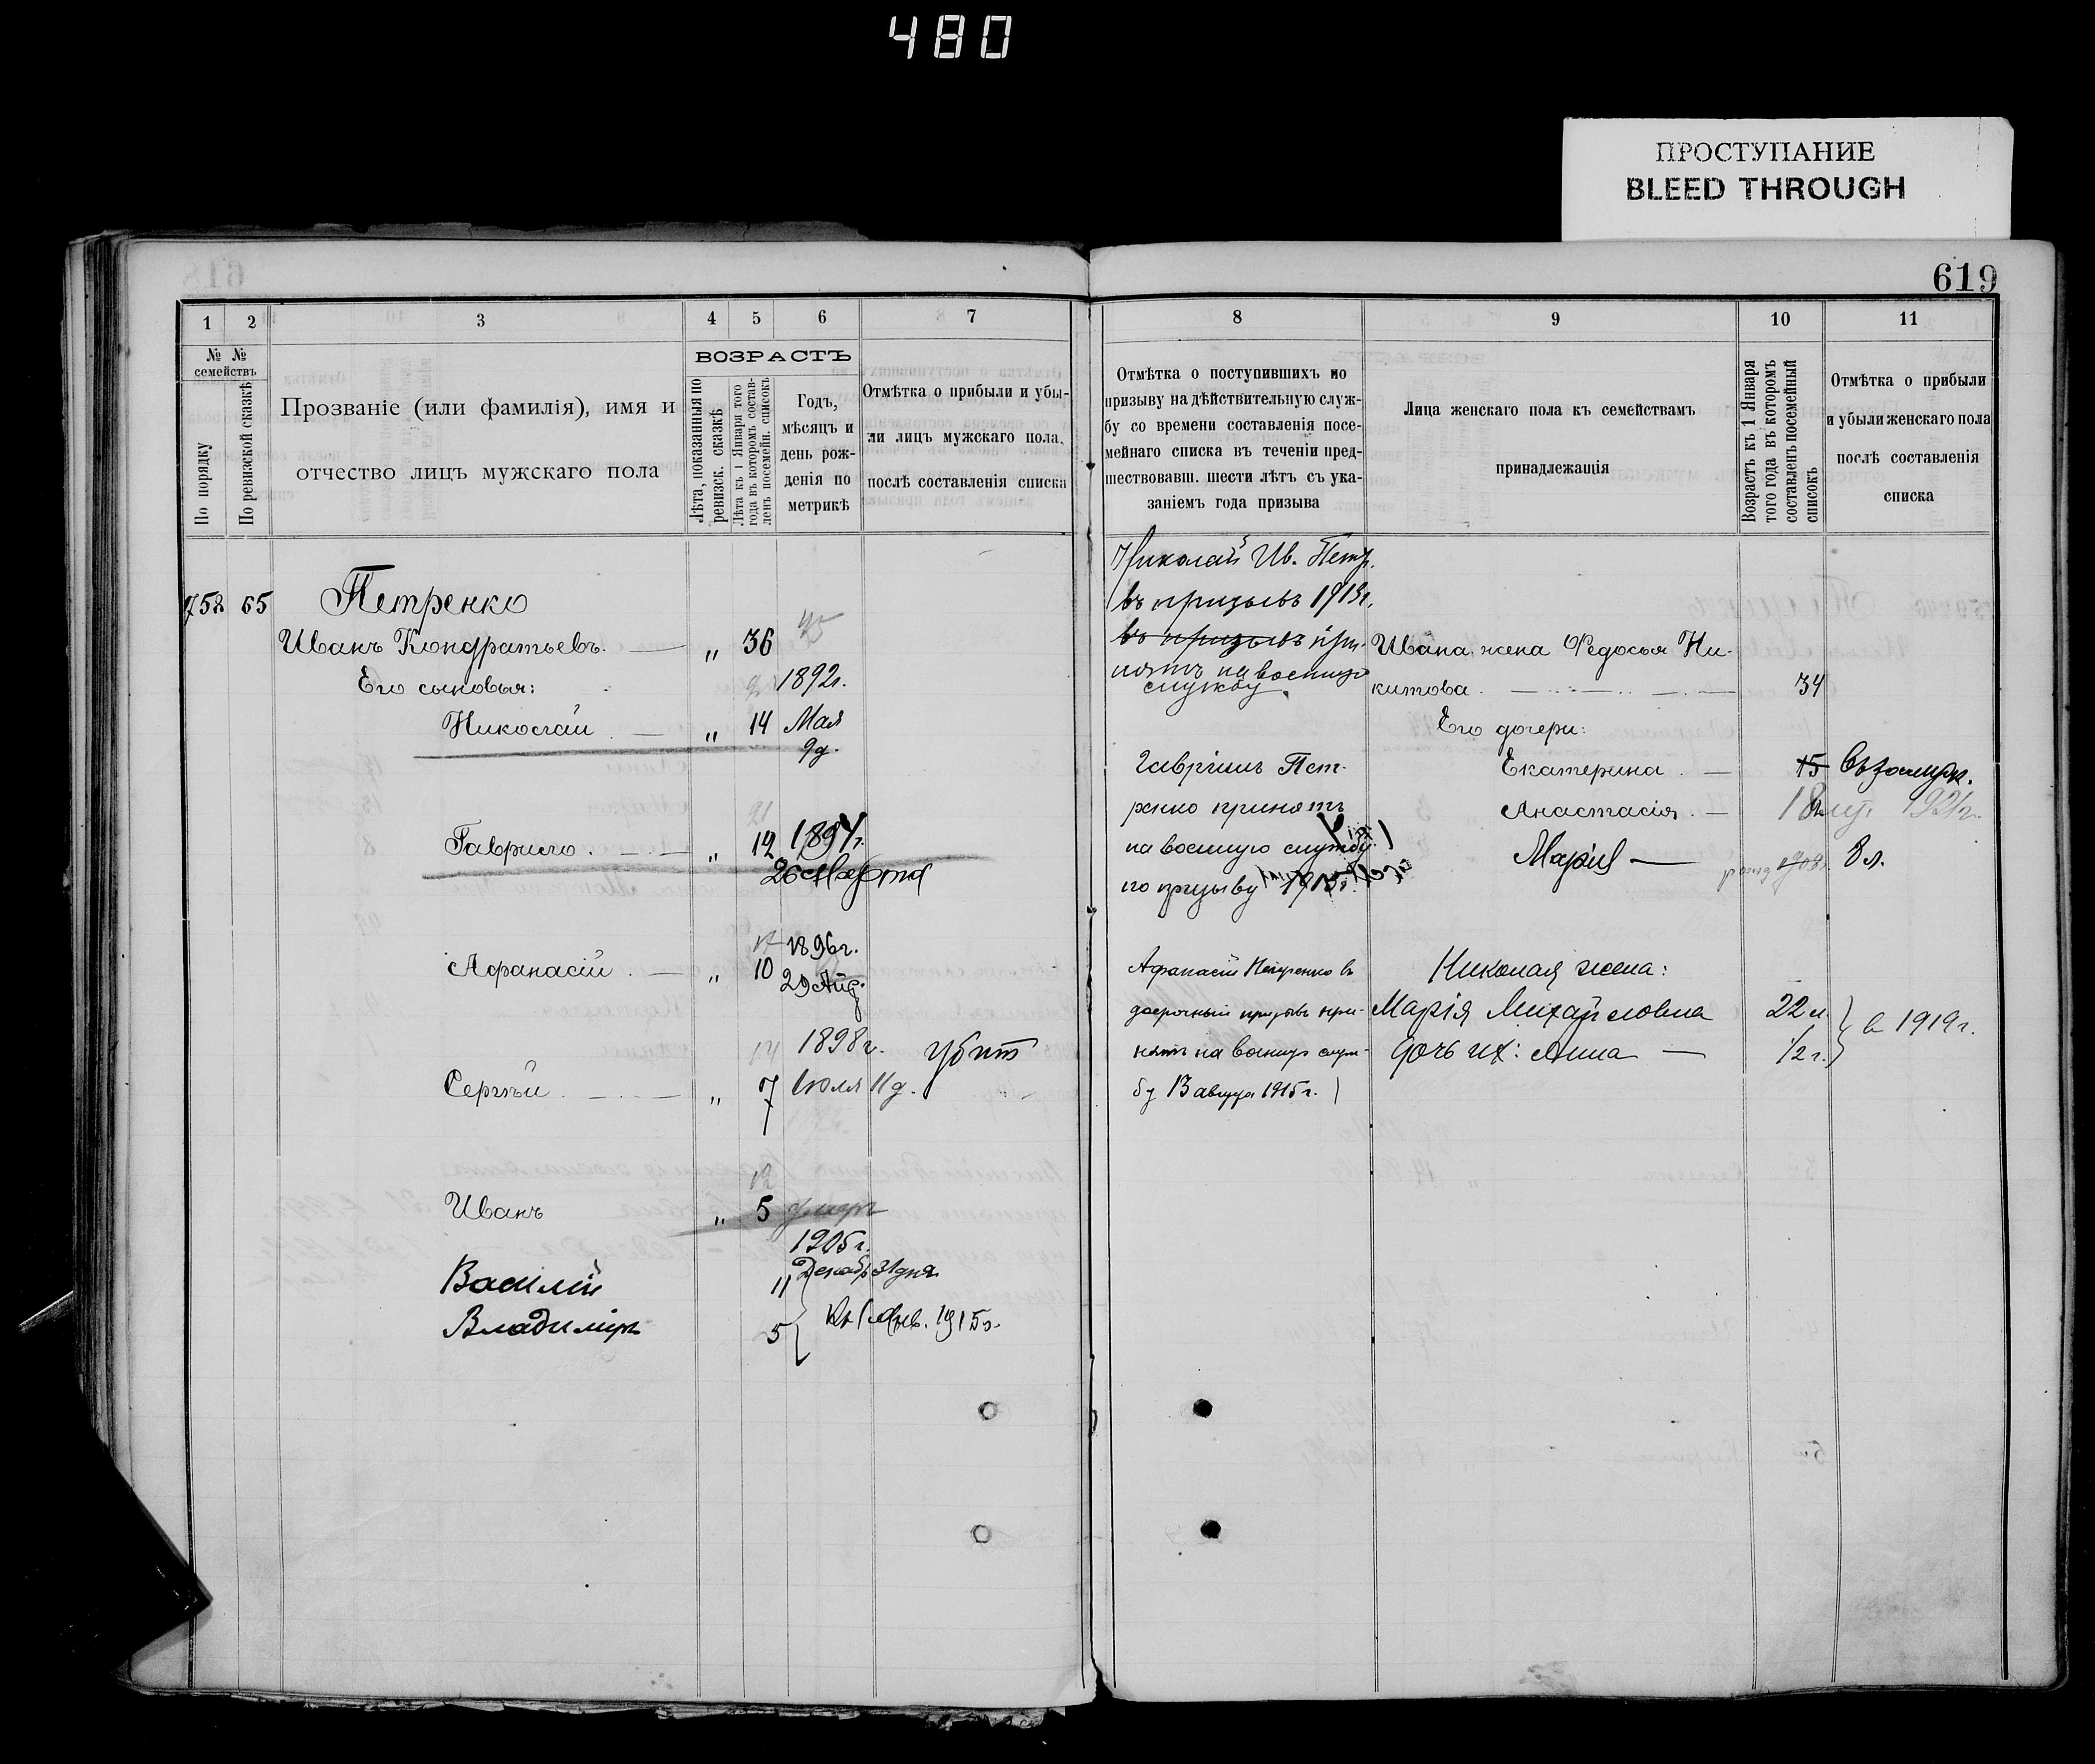 480
ПРОСТУПАНИЕ
BLEED THROUGH
619
1 2 3 4 5 6 7 8 9 10 11
№ №
семействъ
По порядку
По ревизской сказкѣ
Прозваніе (или фамилія), имя и
отчество лицъ мужскаго пола
ВОЗРАСТЪ
Лѣта, показанныя по
ревизск. сказкѣ
Лѣта къ 1 Января того
года въ которомъ состав-
ленъ посемейн. списокъ
Годъ,
мѣсяцъ и
день рож-
денія по
метрикѣ
Отмѣтка о прибыли и убы-
ли лицъ мужскаго пола,
послѣ составленія списка
Отмѣтка о поступившихъ по
призыву на дѣйствительную служ-
бу со времени составленія посе-
мейнаго списка въ теченіи пред-
шествовавш. шести лѣтъ съ ука-
заніемъ года призыва
Лица женскаго пола къ семействамъ
принадлежащія
Возрастъ къ 1 Января
того года въ которомъ
составленъ посемейный
списокъ
Отмѣтка о прибыли
и убыли женскаго пола
послѣ составленія
списка
758 65 Петренко
Иванъ Кондратьевъ. — „ 36
Его сыновья: 1892г.
Николай — „ 14 Мая
9д.
21
Гаврило. — „ 12 1894г.
26 Марта
17 1896г.
Афанасій. — „ 10 29 Авг.
14 1898г. убит
Сергѣй. — „ 7 Іюля 11д.
12
Иванъ „ 5 умеръ
1905г.
Василій 11 Декабр 31 дня
Владиміръ 5 Къ 1 Янв. 1915г.
Николай Ив. Петр.
въ призывъ 1913г.
въ призывъ при-
нятъ на военную
службу.
Гавріилъ Пет-
ренко принятъ
на военную службу
по призыву 1915г.
Афанасій Петренко въ
досрочный призывъ при-
нятъ на военную служ-
бу 13 августа 1915г.
Ивана жена Федосья Ни-
китова. — 34
Его дочери:
Екатерина. — 15 въ замуж.
Анастасія. — 18 1921г.
Марія — 1908г. 8 л.
Николая жена:
Марія Михайловна 22 л.
дочь их: Анна — 1/2 г.
в 1919г.